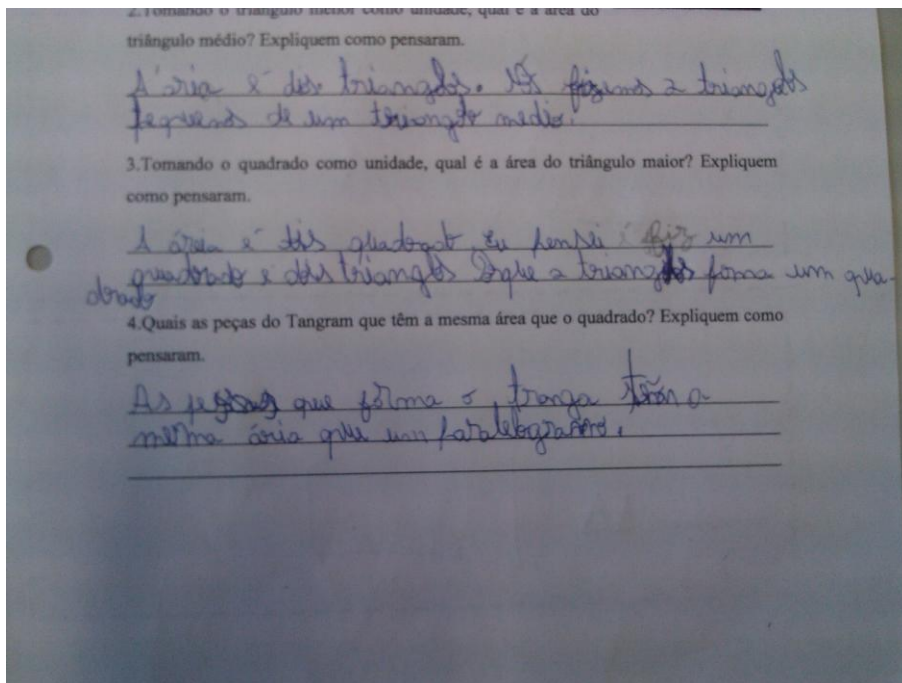 2.Tomando o triângulo menor como unidade, qual é a área do
triângulo médio? Expliquem como pensaram.
A ária é dis triangolos. Nós fizemos 2 triangols
pequenos de um triangolo medio.
3.Tomando o quadrado como unidade, qual é a área do triângulo maior? Expliquem
como pensaram.
A área é dois Eu pensei fiz um
quadrado e dois triangls 2 forma um qua-
drado
4.Quais as peças do Tangram que têm a mesma área que o quadrado? Expliquem como
pensaram.
As que forma o a
mesma ária que um